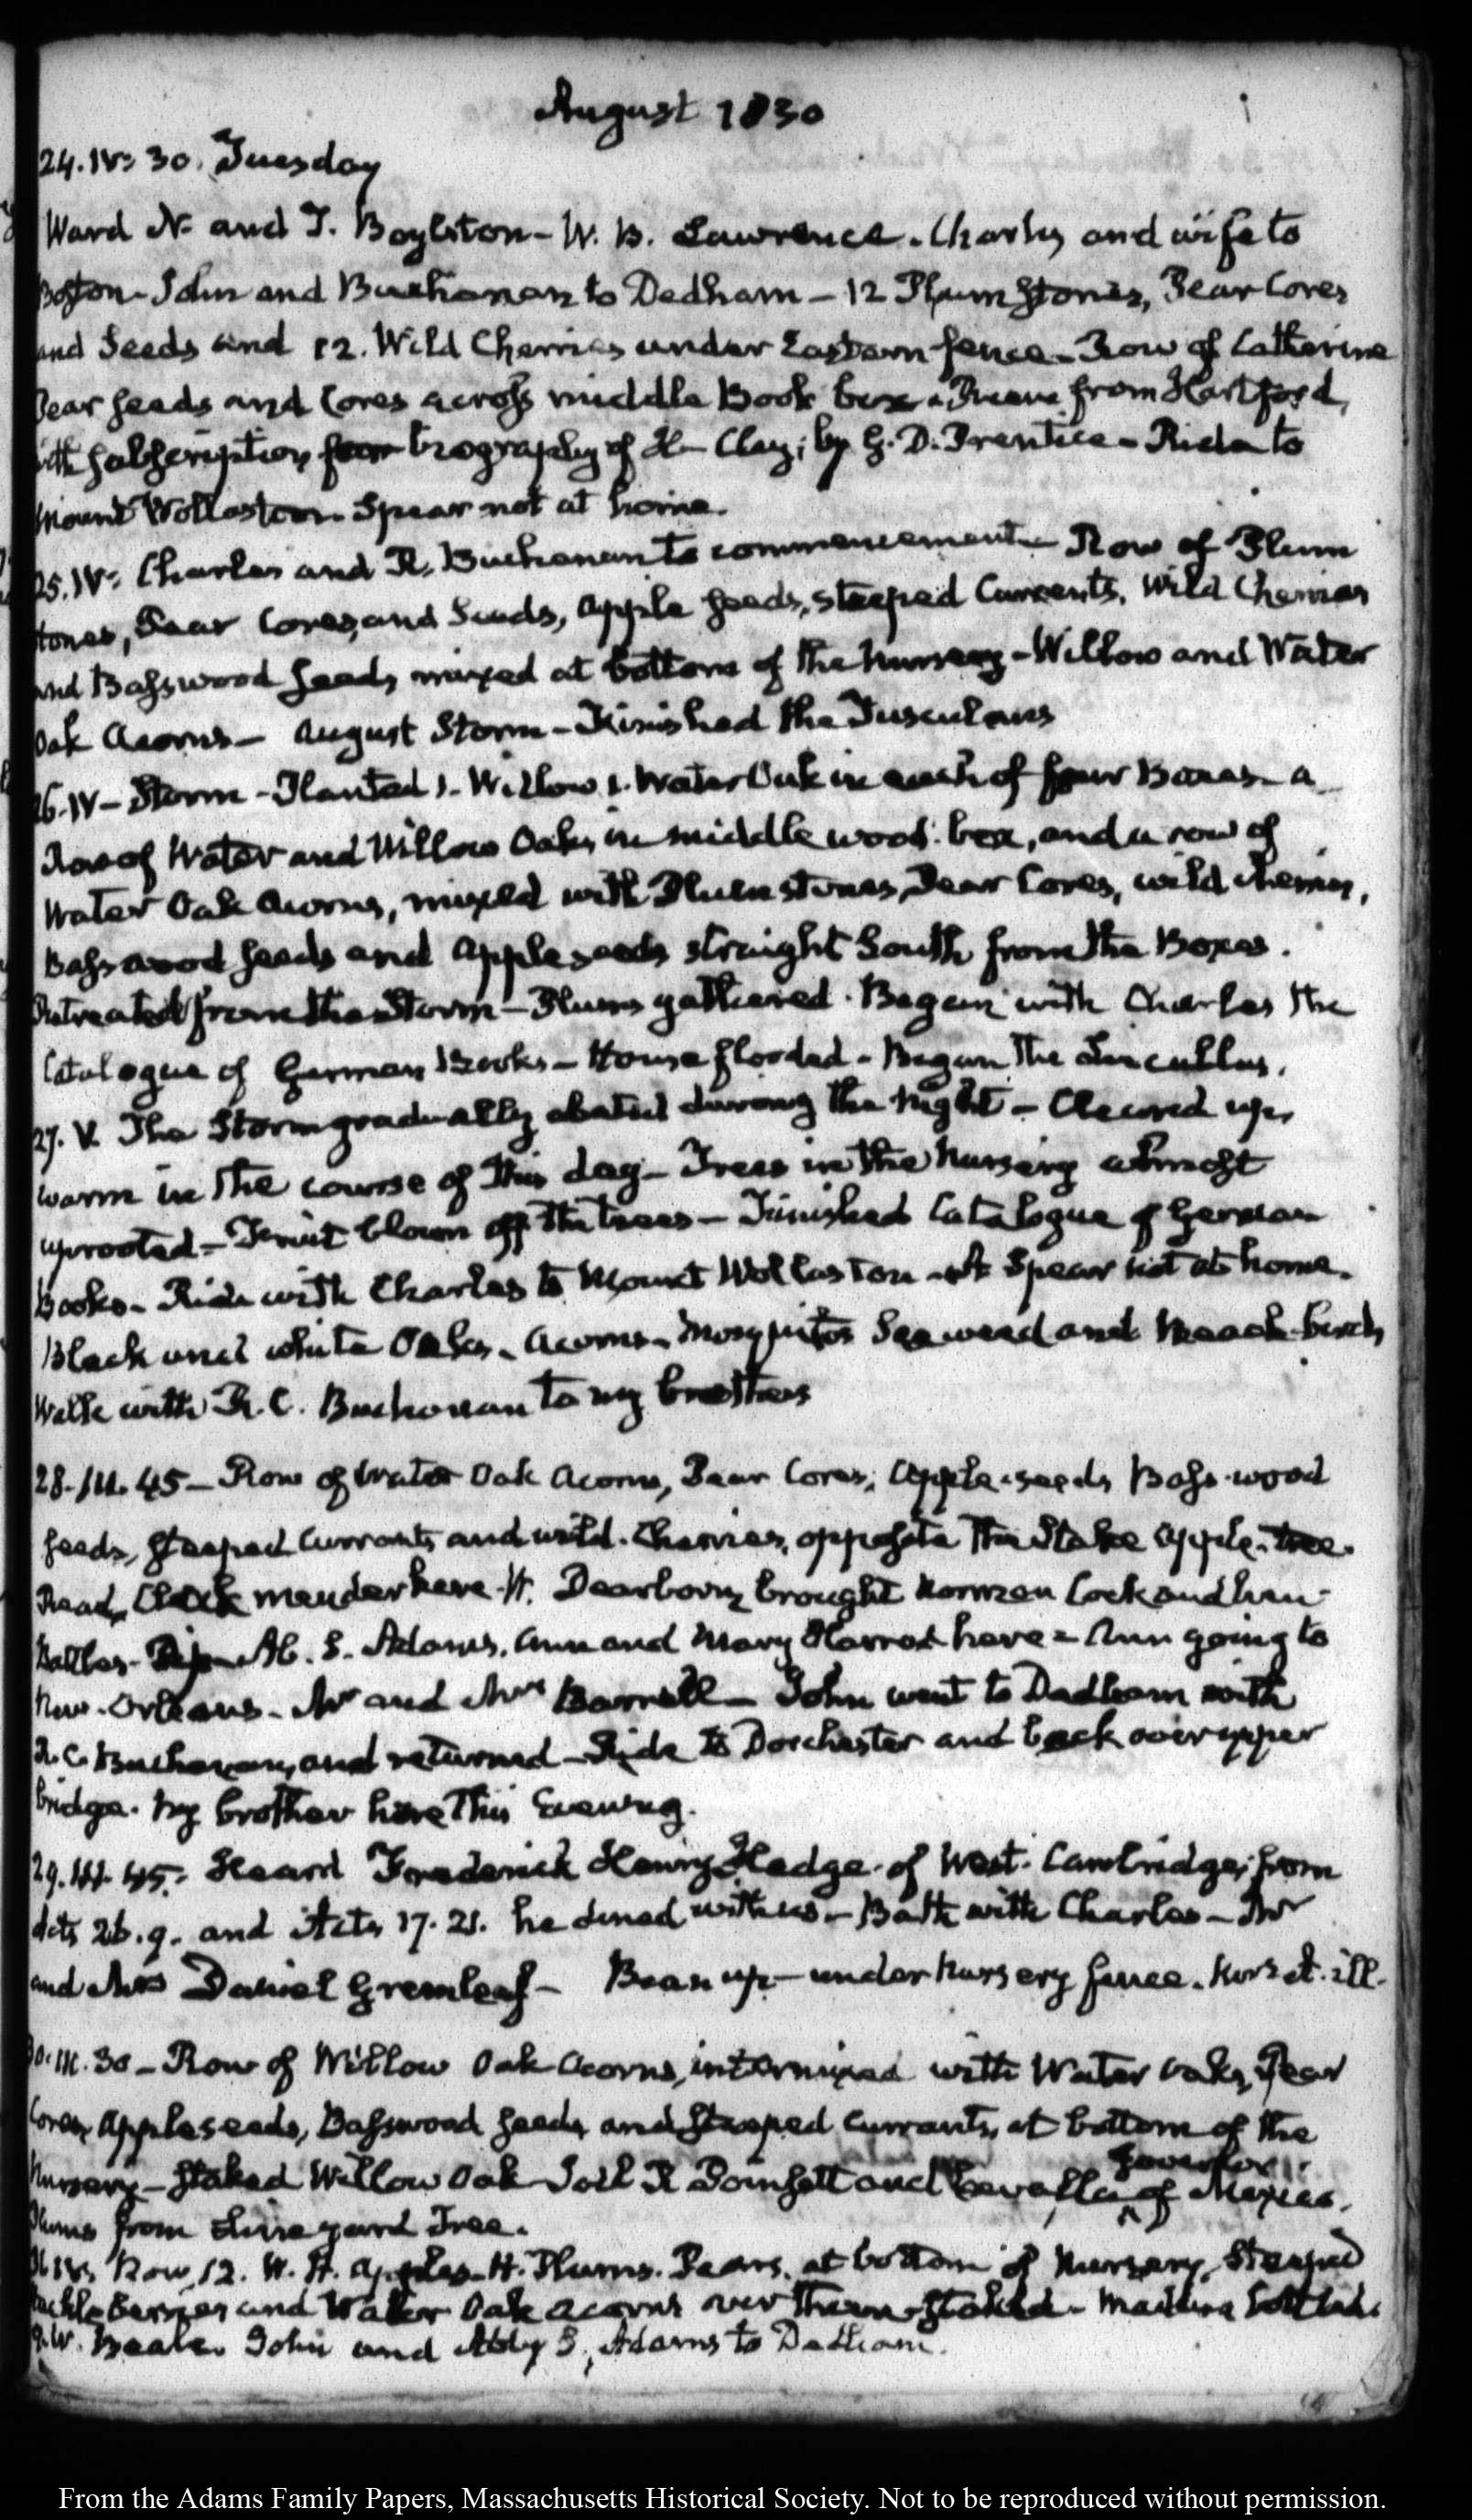 August 1830
24. IV: 30. Tuesday
Ward N. and T. Boylston - W. B. Lawrence. Charles and wife to
Boston - John and Buchanan to Dedham - 12 Plum stones, Pear Cores
and Seeds and 12. Wild Cherries under Eastern fence - Row of Catherine
Pear seeds and Cores across middle Book box - from Hartford,
with subscription for biography of H. Clay; by G. D. Prentice - Ride to
Mount Wollaston. Spear not at home.
25. IV: Charles and R. Buchanan to commencement - Row of Plum
stones, Pear Cores, and Seeds, apple seeds, steeped Currents, Wild Cherries
and Basswood seeds mixed at bottom of the Nursery - Willow and Water
Oak acorns - August Storm - Finished the Tusculans
26. IV - Storm - Planted 1. Willow 1. Water Oak in each of four Boxes - a
Row of Water and Willow Oaks, in middle wood: box, and a row of
Water Oak acorns, mixed with Plum stones, Pear Cores, wild cherries,
Basswood seeds and apple seeds straight South from the Boxes.
Retreated from the Storm - Plums gathered. Began with Charles the
Catalogue of German Books - House flooded - Began the Lucullus.
27. V. The Storm gradually abated during the night - Cleared up,
warm in the course of this day - Trees in the nursery almost
uprooted - Fruit blown off the trees - Finished Catalogue of German
Books - Ride with Charles to Mount Wollaston - Spear not at home.
Black and white Oaks - acorns - Mosquitos Seaweed and
Walk with R. C. Buchanan to my brothers
28. III. 45 - Row of Water Oak acorns, Pear Cores, Apple-seeds Bass-wood
seeds, steeped Currants and wild-Cherries, opposite the Stake apple-tree.
Read, Clock mender here. H. Dearborn brought
Ab. S. Adams, Ann and Mary Harrod here - Ann going to
New-Orleans - Mr and Mrs Barrell - John went to Dedham with
R. C. Buchanan, and returned - Ride to Dorchester and back over upper
bridge. My brother here this Evening.
29. III. 45: Heard Frederick Henry Hedge of West-Cambridge; from
Acts 26. 9. and Acts 17. 21. he dined with us - Bath with Charles - Mr
and Mrs Daniel Greenleaf - Bean up - under nursery fence. ill.
30. III. 30 - Row of Willow Oak acorns, intermixed with Water oaks, Pear
Cores, Apple seeds, Basswood seeds and steeped Currants, at bottom of the
Nursery - staked Willow Oak Joel R Poinsett and Governor of Mexico.
Plums from Tree.
31. IV: Row, 12. W. H. apples - H. Plums. Pears, at bottom of Nursery, Steeped
Huckle Berries and Water Oak acorns over them - staked -
G. W. Beale. John and Abby S. Adams to Dedham.
From the Adams Family Papers, Massachusetts Historical Society. Not to be reproduced without permission.